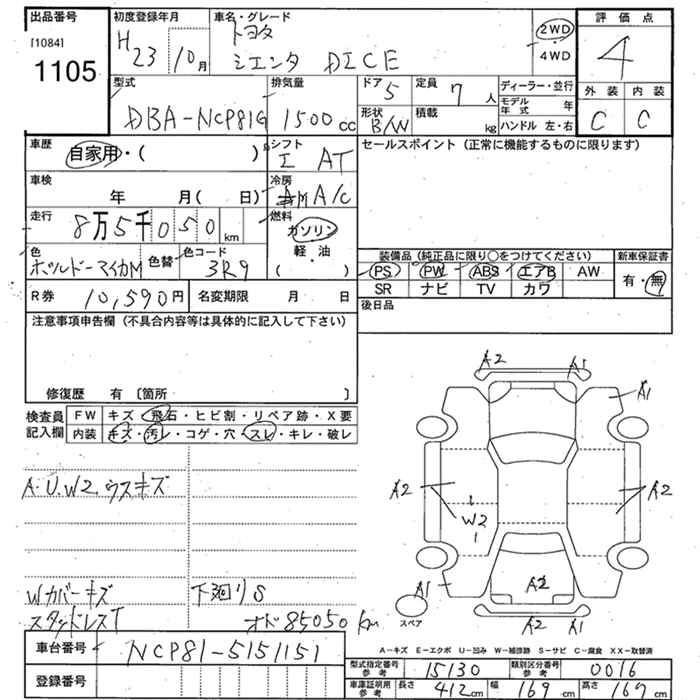 出品番号 初度登録年月 車名・グレード 評価点
[1084] H23 10月 トヨタ 2WD 4
1105 シエンタ DICE ・4WD
外装 内装
C C
型式 排気量 ドア 5 定員 7人 ディーラー・並行
DBA-NCP81G 1500cc モデル年式 年
形状 B/W 積載 kg ハンドル 左・右
車歴 自家用・( ) シフト I AT セールスポイント (正常に機能するものに限ります)
車検 年 月( 日) 冷房 A/C
走行 8万5千050km 燃料 ガソリン
軽・油
( )
色 ボルドーマイカM 色替 色コード 3R9
装備品 (純正品に限り○をつけてください) 新車保証書
PS PW ABS エアB AW 有・無
SR ナビ TV カワ
R券 10,590円 名変期限 月 日 後日品
注意事項申告欄 (不具合内容等は具体的に記入して下さい)
修復歴 有 〔箇所 〕
検査員記入欄 FW キズ・飛石・ヒビ割・リペア跡・X要
内装 キズ・汚レ・コゲ・穴・スレ・キレ・破レ
A2 A1
A1
A.U.W2.ウスキズ
A2 W2 A2
Wカバーキズ 下廻りS
A1 A2
スタッドレスT オド85050km
スペア A2 A1
A-キズ E-エクボ U-凹み W-補修跡 S-サビ C-腐食 XX-取替済
車台番号 NCP81-5151151
型式指定番号 参考 15130 類別区分番号 参考 0016
登録番号
車庫証明用 参考 長さ 412cm 幅 169cm 高さ 167cm